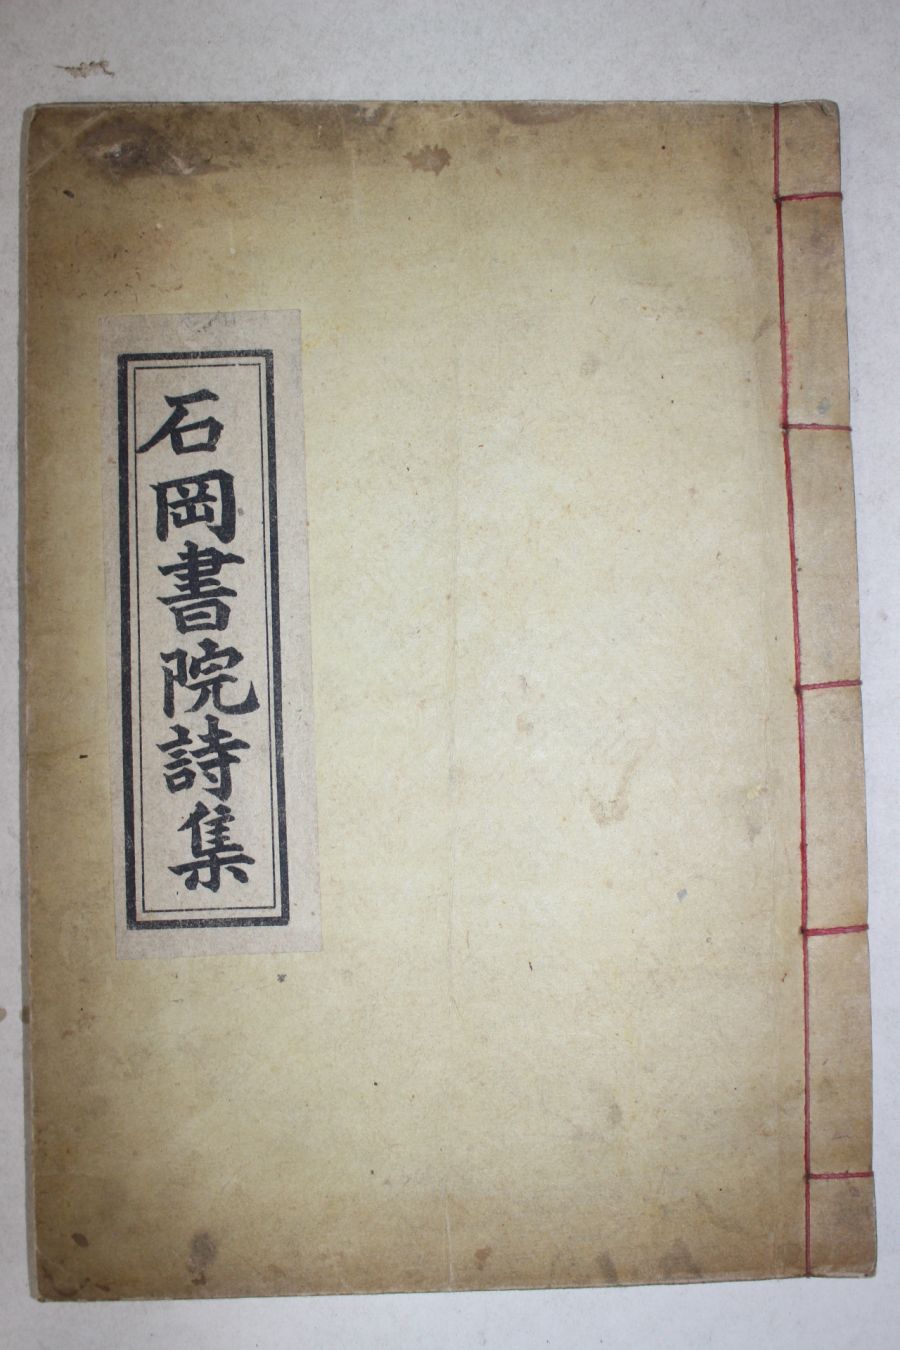 石岡書院詩集